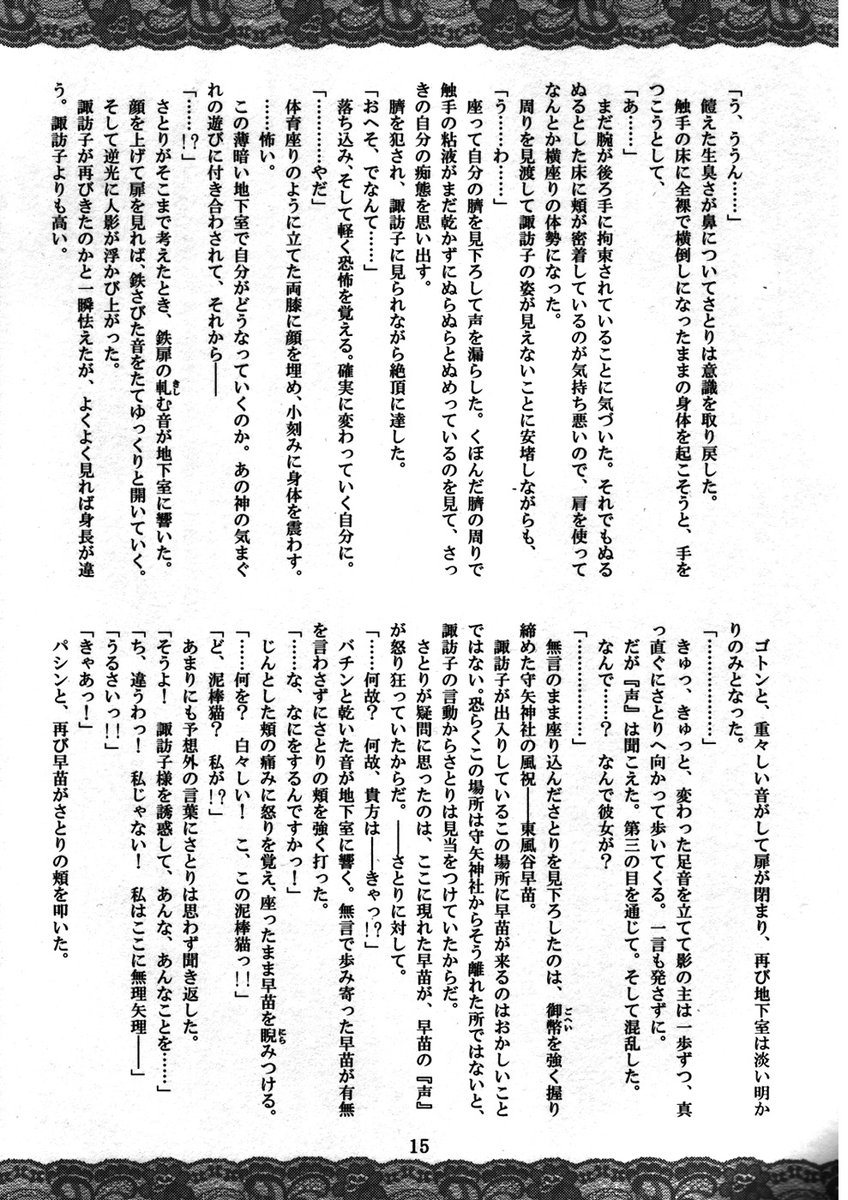 「う、ううん……」
饐えた生臭さが鼻についてさとりは意識を取り戻した。
触手の床に全裸で横倒しになったままの身体を起こそうと、手を
つこうとして、
「あ……」
まだ腕が後ろ手に拘束されていることに気づいた。それでもぬる
ぬるとした床に頬が密着しているのが気持ち悪いので、肩を使って
なんとか横座りの体勢になった。
周りを見渡して諏訪子の姿が見えないことに安堵しながらも、
「う……わ……」
座って自分の臍を見下ろして声を漏らした。くぼんだ臍の周りで
触手の粘液がまだ乾かずにぬらぬらとぬめっているのを見て、さっ
きの自分の痴態を思い出す。
臍を犯され、諏訪子に見られながら絶頂に達した。
「おへそ、でなんて……」
落ち込み、そして軽く恐怖を覚える。確実に変わっていく自分に。
「…………やだ」
体育座りのように立てた両膝に顔を埋め、小刻みに身体を震わす。
……怖い。
この薄暗い地下室で自分がどうなっていくのか。あの神の気まぐ
れの遊びに付き合わされて、それから――
「……!?」
さとりがそこまで考えたとき、鉄扉の軋む音が地下室に響いた。
顔を上げて扉を見れば、鉄さびた音をたてゆっくりと開いていく。
そして逆光に人影が浮かび上がった。
諏訪子が再びきたのかと一瞬怯えたが、よくよく見れば身長が違
う。諏訪子よりも高い。
ゴトンと、重々しい音がして扉が閉まり、再び地下室は淡い明か
りのみとなった。
「………………」
きゅっ、きゅっと、変わった足音を立てて影の主は一歩ずつ、真
っ直ぐにさとりへ向かって歩いてくる。一言も発さずに。
だが『声』は聞こえた。第三の目を通じて。そして混乱した。
なんで……？　なんで彼女が？
「………………」
無言のまま座り込んださとりを見下ろしたのは、御幣を強く握り
締めた守矢神社の風祝――東風谷早苗。
諏訪子が出入りしているこの場所に早苗が来るのはおかしいこと
ではない。恐らくこの場所は守矢神社からそう離れた所ではないと、
諏訪子の言動からさとりは見当をつけていたからだ。
さとりが疑問に思ったのは、ここに現れた早苗が、早苗の『声』
が怒り狂っていたからだ。――さとりに対して。
「……何故？　何故、貴方は――きゃっ!?」
バチンと乾いた音が地下室に響く。無言で歩み寄った早苗が有無
を言わさずにさとりの頬を強く打った。
「……な、なにをするんですかっ！」
じんとした頬の痛みに怒りを覚え、座ったまま早苗を睨みつける。
「……何を？　白々しい！　こ、この泥棒猫っ!!」
「ど、泥棒猫？　私が!?」
あまりにも予想外の言葉にさとりは思わず聞き返した。
「そうよ！　諏訪子様を誘惑して、あんな、あんなことを……」
「ち、違うわっ！　私じゃない！　私はここに無理矢理――」
「うるさいっ!!」
「きゃあっ！」
パシンと、再び早苗がさとりの頬を叩いた。
15